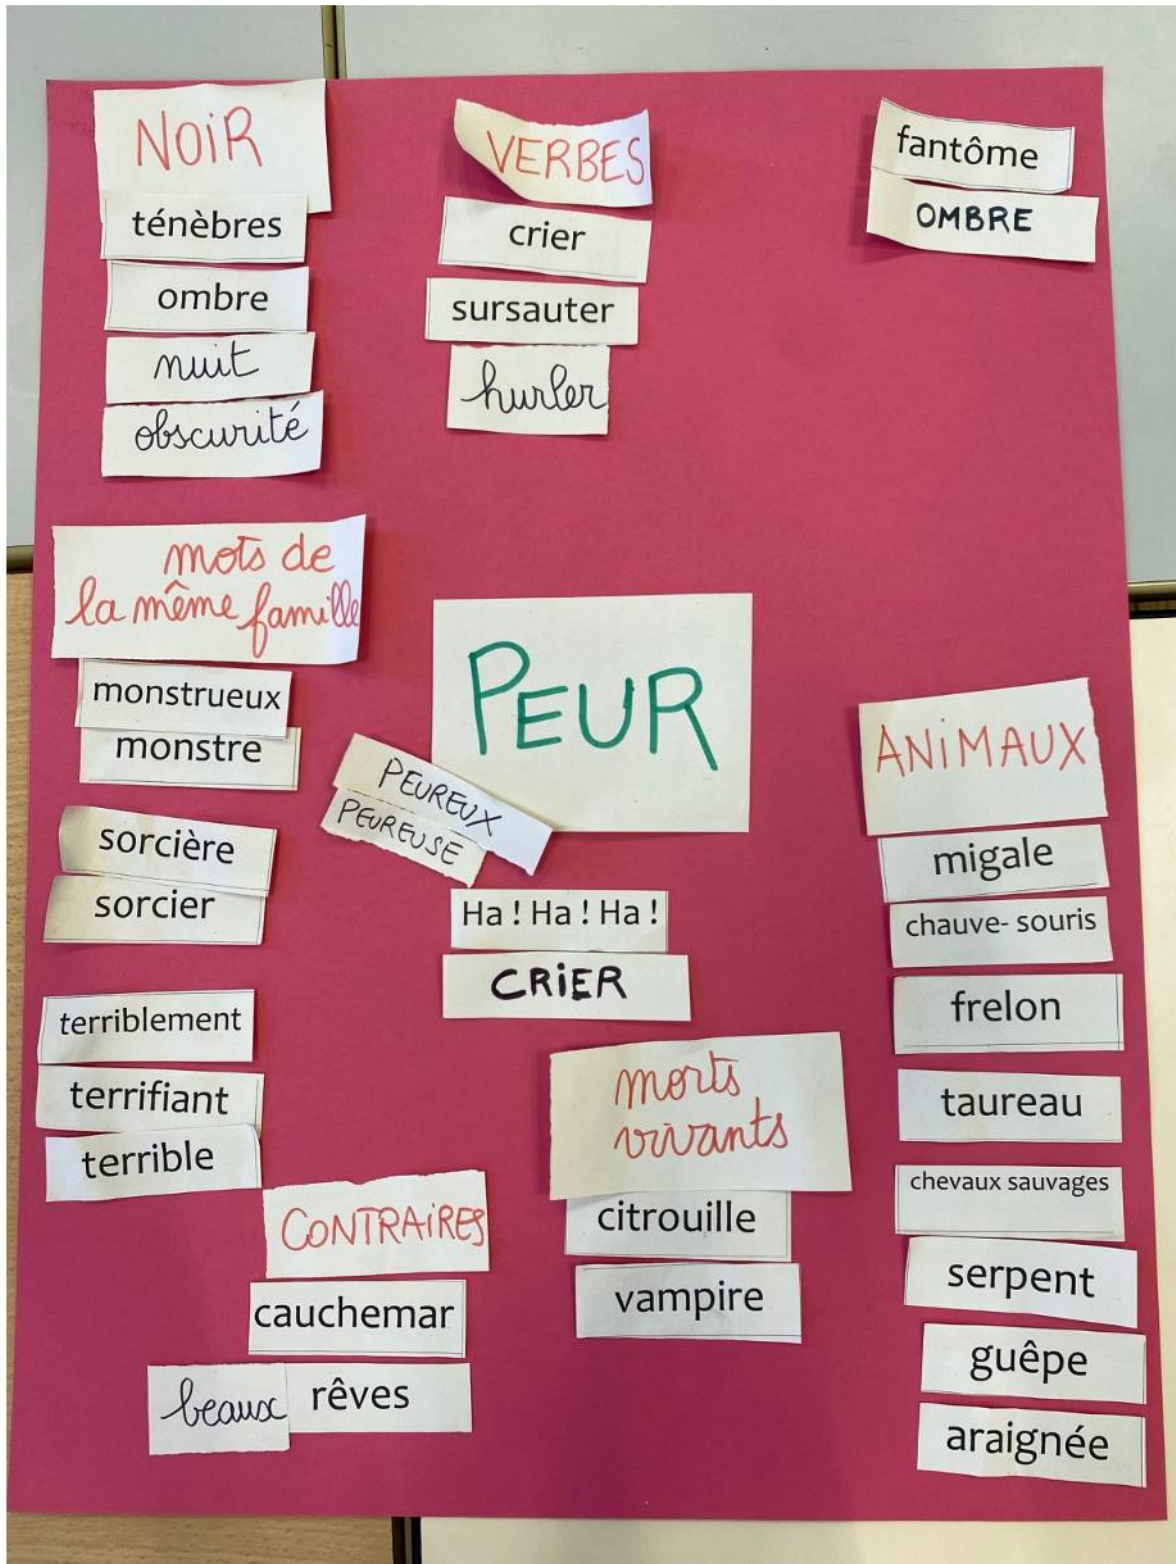 NOIR
ténèbres
ombre
nuit
obscurité
VERBES
crier
sursauter
hurler
fantôme
OMBRE
mots de
la même famille
monstrueux
monstre
sorcière
sorcier
terriblement
terrifiant
terrible
PEUR
PEUREUX
PEUREUSE
Ha ! Ha ! Ha !
CRIER
ANIMAUX
migale
chauve- souris
frelon
taureau
chevaux sauvages
serpent
guêpe
araignée
morts
vivants
citrouille
vampire
CONTRAIRES
cauchemar
beaux rêves